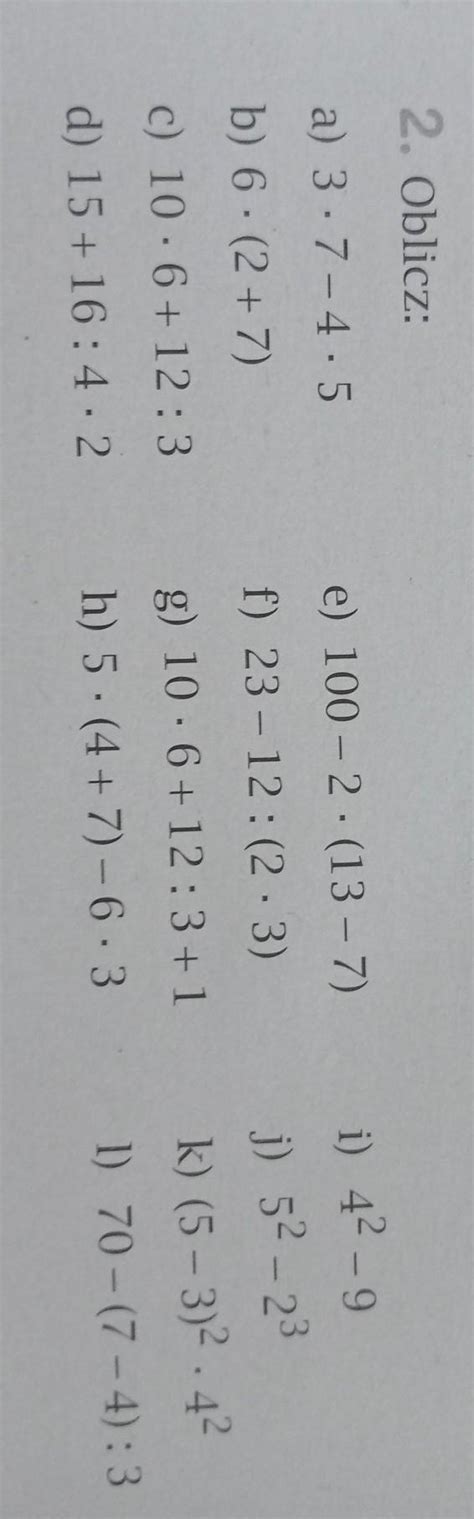 2. Oblicz:
a) 3 · 7 – 4 · 5
b) 6 · (2 + 7)
c) 10 · 6 + 12 : 3
d) 15 + 16 : 4 · 2
e) 100 – 2 · (13 – 7)
f) 23 – 12 : (2 · 3)
g) 10 · 6 + 12 : 3 + 1
h) 5 · (4 + 7) – 6 · 3
i) 4² – 9
j) 5² – 2³
k) (5 – 3)² · 4²
l) 70 – (7 – 4) : 3